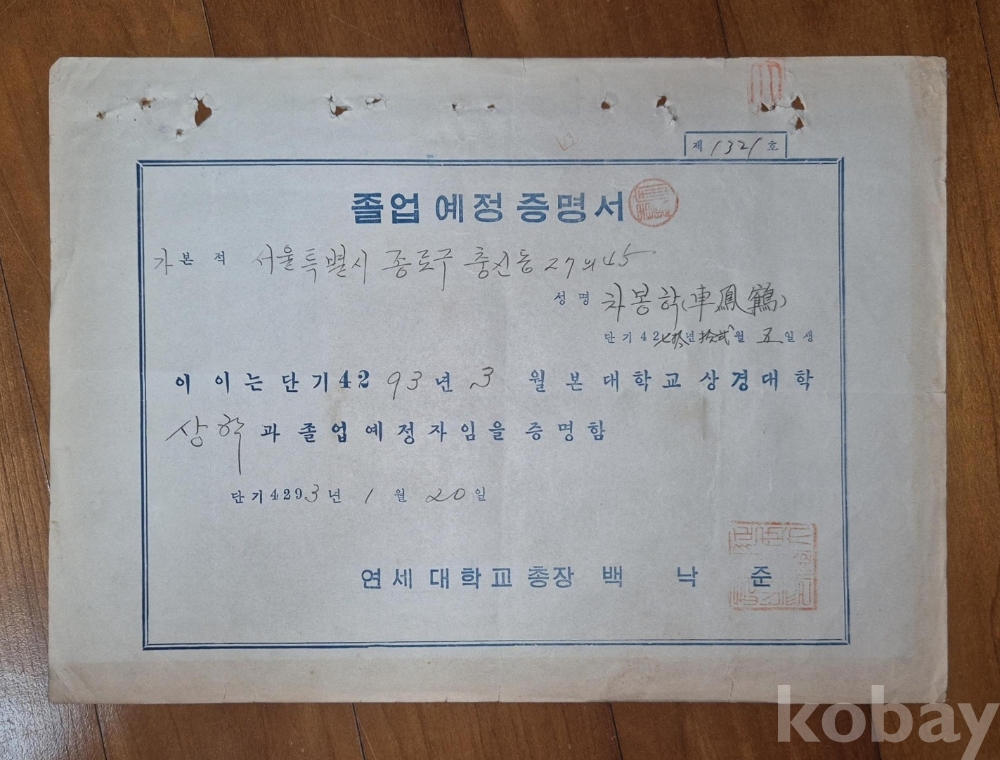 제 1321 호
졸업 예정 증명서
본 적 서울특별시 종로구 충신동 27의 45
성 명 차봉학(車鳳鶴)
단기 42 년 拾貳 월 五 일생
이 이는 단기 4293년 3 월 본 대학교 상경대학
상학 과 졸업예정자임을 증명함
단기 4293년 1 월 20 일
연세 대학교 총장 백 낙 준
kobay